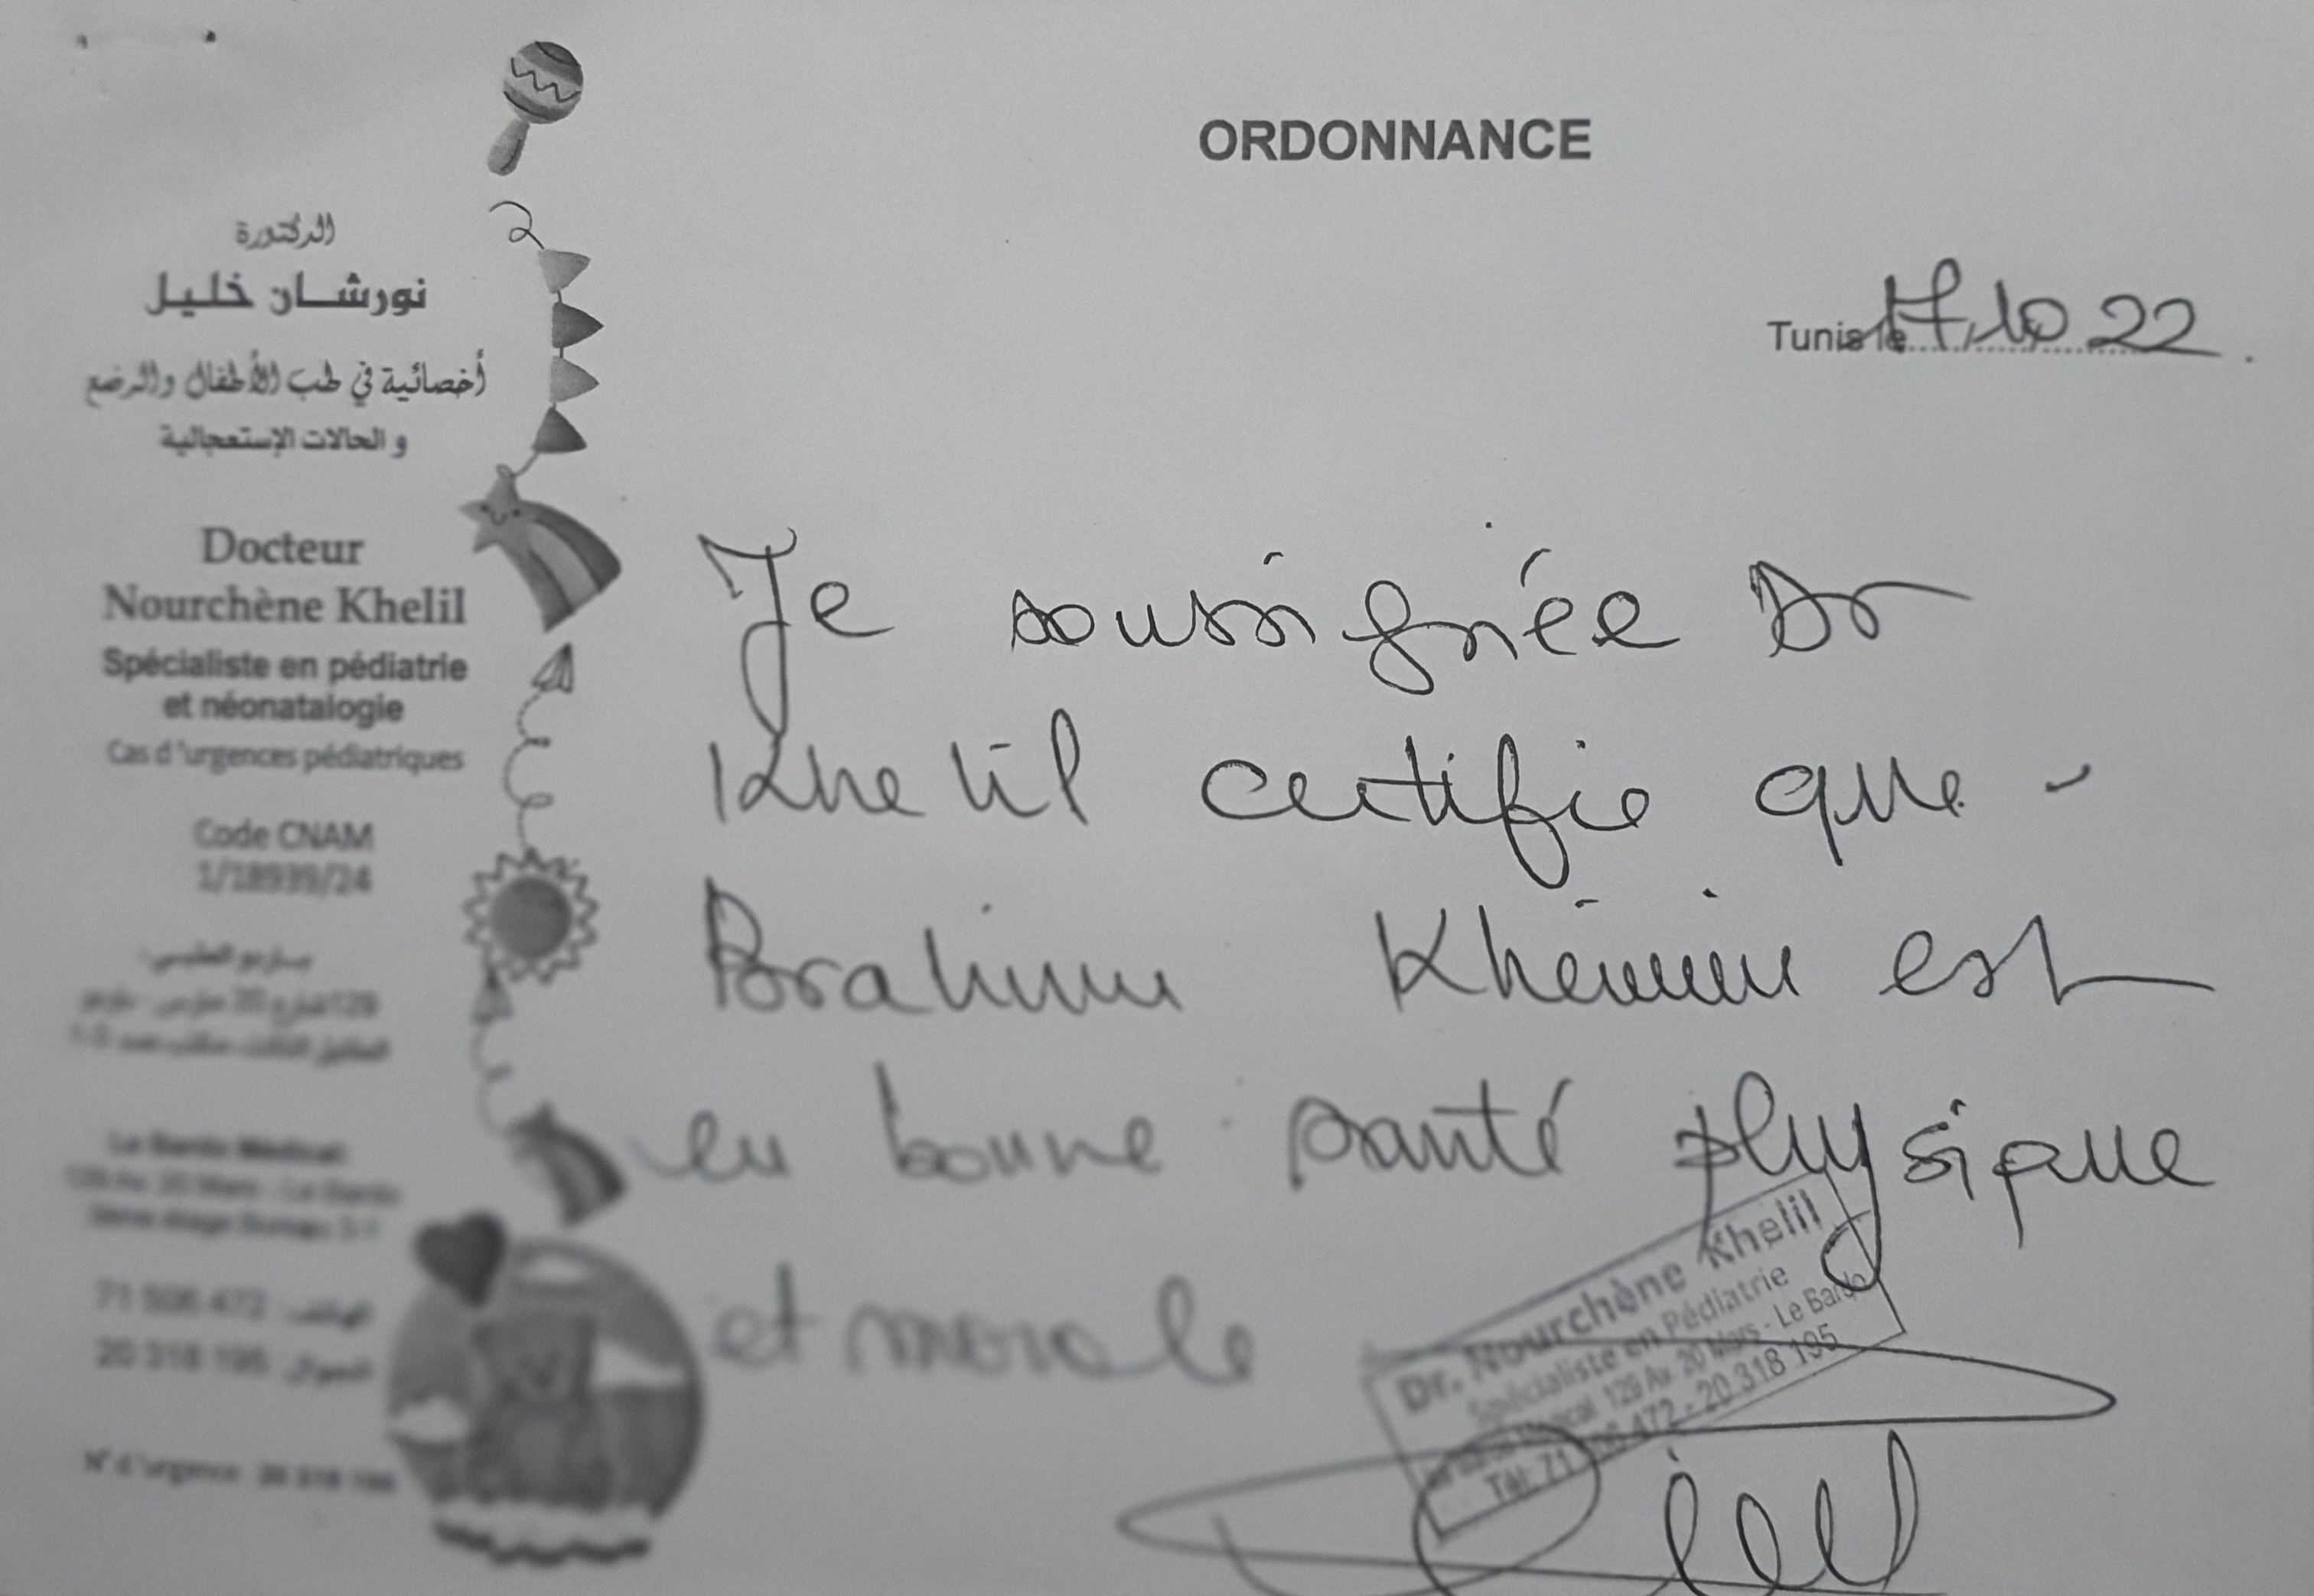 ORDONNANCE
الدكتورة
نورشان خليل
أخصائية في طب الأطفال والرضع
و الحالات الإستعجالية
Docteur
Nourchène Khelil
Spécialiste en pédiatrie
et néonatalogie
Cas d'urgences pédiatriques
Code CNAM
1/18939/24
باردو الطبي
129 شارع 20 مارس - باردو
Le Bardo Médical
129 Av. 20 Mars - Le Bardo
71 506 472 الهاتف:
20 318 195 الجوال:
N° d'urgence: 20 318 195
Tunis le 17/10 22
Je soussignée Dr
Khelil certifie que -
Brahim Khémiri est
en bonne santé physique
et morale
Dr. Nourchène Khelil
Spécialiste en Pédiatrie
Médical 129 Av. 20 Mars - Le Bardo
Tél: 71 506 472 - 20 318 195